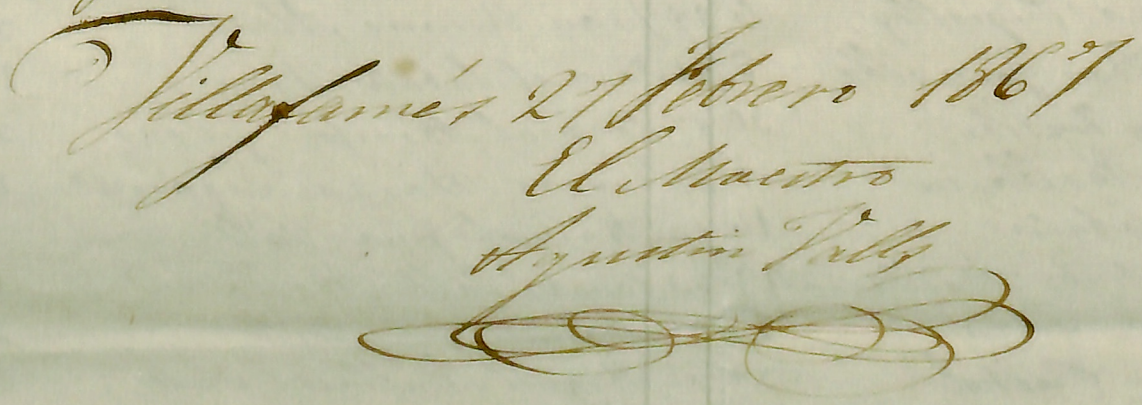 Villafamés 27 Febrero 1867
El Maestro
Agustin Valls